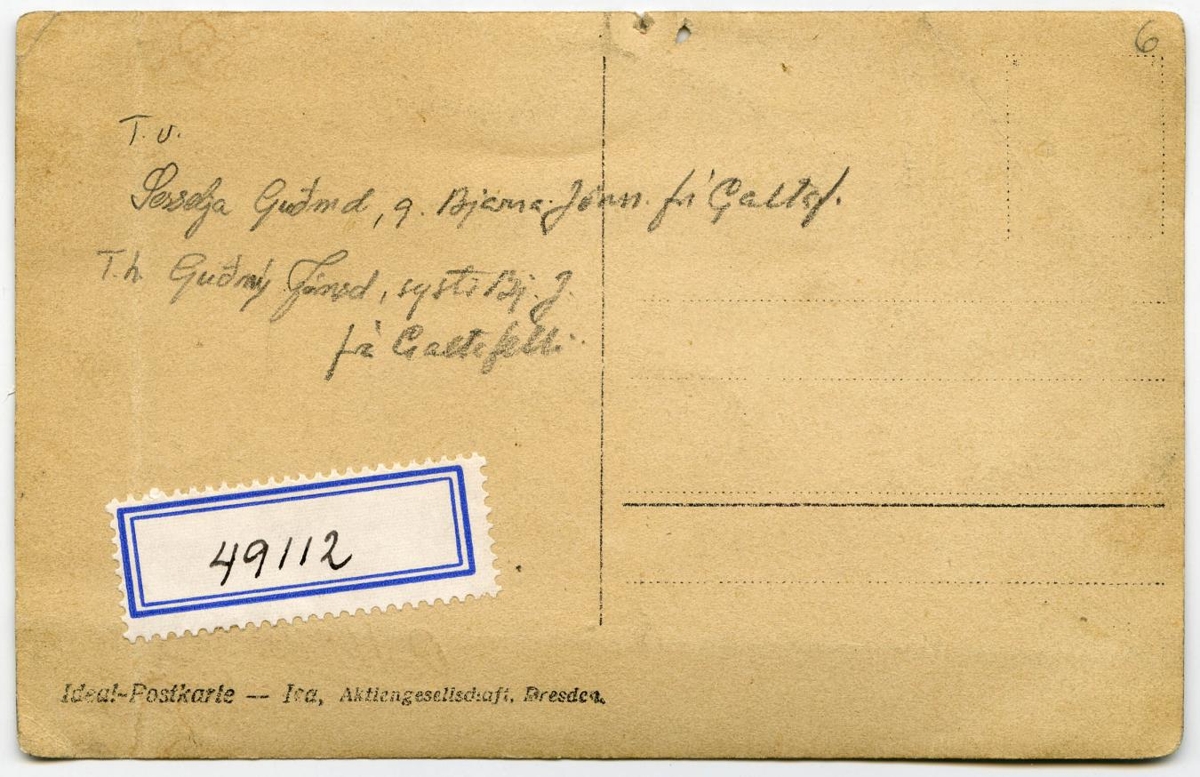 6
T.v.
Sesselja Guðmd, g. Bjarna Jónss. frá Galtaf.
T.h. Guðný Jónsd, systir Bj. J.
frá Galtafelli.
49112
Ideal-Postkarte — Ica, Aktiengesellschaft, Dresden.